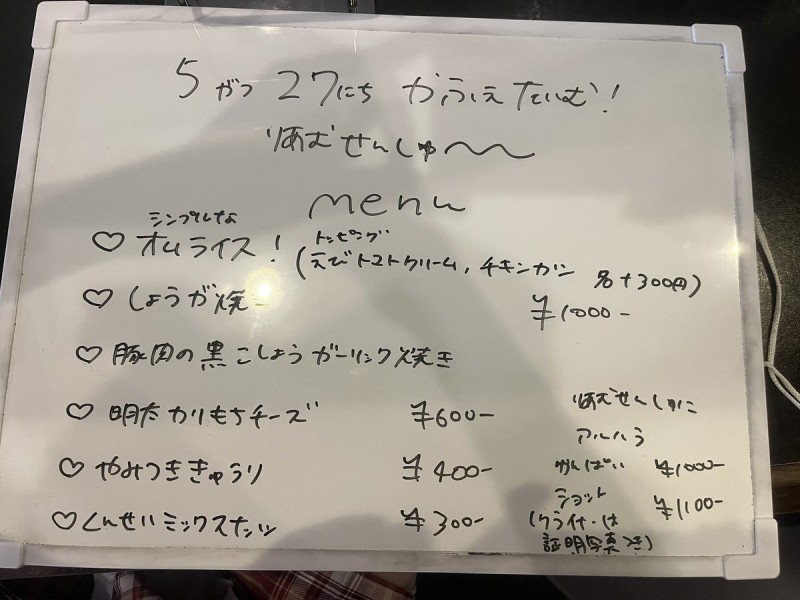 5がつ27にち かふぇたいむ!
りあむせんしゅ〜〜
menu
シンプルな
♡ オムライス!
トッピング
(えびトマトクリーム, チキンカツ 各+300円)
♡ しょうが焼き
¥1000-
♡ 豚肉の黒こしょうガーリック焼き
♡ 明太カリもちチーズ ¥600-
♡ やみつききゅうり ¥400-
♡ くんせいミックスナッツ ¥300-
りあむせんしゅに
アルハラ
かんぱい ¥1000-
ショット ¥1100-
(クライナーは
証明写真つき)